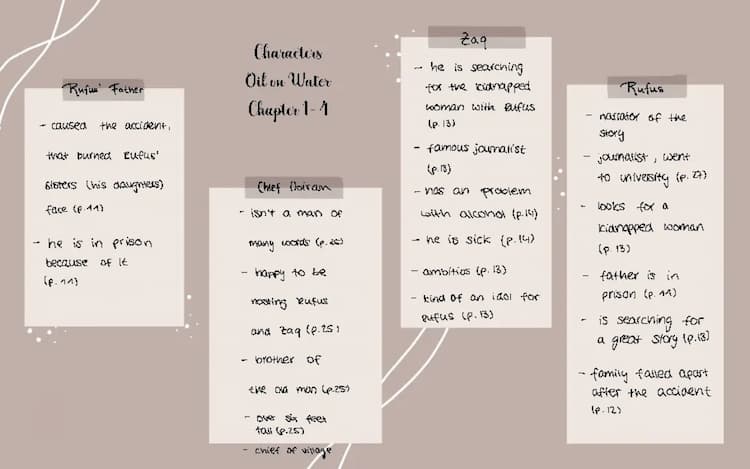 Characters
Oil on Water
Chapter 1-4
Rufus' Father
- caused the accident,
that burned Rufus'
sisters (his daughters)
face (p.11)
- he is in prison
because of it
(p.11)
Chief Ibiram
- isn't a man of
many words (p.26)
- happy to be
hosting Rufus
and Zaq (p.25)
- brother of
the old man (p.25)
- over six feet
tall (p.25)
- chief of village
Zaq
- he is searching
for the kidnapped
woman with Rufus
(p.13)
- famous journalist
(p.13)
- has an problem
with alcohol (p.14)
- he is sick (p.14)
- ambitios (p.13)
- kind of an idol for
Rufus (p.13)
Rufus
- narrator of the
story
- journalist, went
to university (p.27)
- looks for a
kidnapped woman
(p.13)
- father is in
prison (p.11)
- is searching for
a great story (p.13)
- family falled apart
after the accident
(p.12)